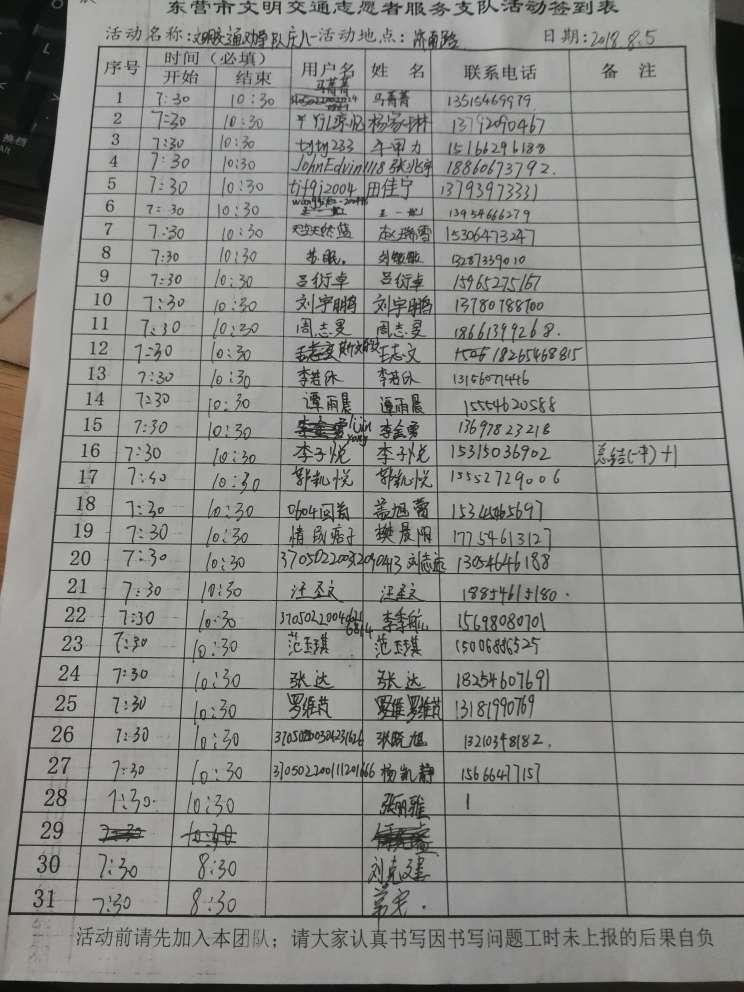 东营市文明交通志愿者服务支队活动签到表
活动名称: 活动地点: 济南路 日期: 2018.8.5
序号 时间（必填） 用户名 姓 名 联系电话 备 注
开始 结束
1 7:30 10:30 马菁菁 马菁菁 13515469979
2 7:30 10:30 13792090467
3 7:30 10:30 233 15166296188
4 7:30 10:30 JohnEdvin1118 张兆宇 18860673792.
5 7:30 10:30 tj+gj2004 田佳宁 13793973331
6 7:30 10:30 13954666279
7 7:30 10:30 赵瑞雪 15306473247
8 7:30 10:30 苏眠。 13287339010
9 7:30 10:30 吕衍卓 吕衍卓 15965275167
10 7:30 10:30 刘宇鹏 刘宇鹏 13780788700
11 7:30 10:30 周志昊 周志昊 18661399268.
12 7:30 10:30 王志文 18265468815
13 7:30 10:30 李若休 李若休 13156077446
14 7:30 10:30 谭雨晨 谭雨晨 15554620588
15 7:30 10:30 李金勇 13697823218
16 7:30 10:30 李子悦 李子悦 15315036902 总结(一中)+1
17 7:40 10:30 郭凯悦 郭凯悦 15552729006
18 7:30 10:30 0604 盖旭蕾 15345465697
19 7:30 10:30 情 痞子 樊晨阳 17754613127
20 7:30 10:30 刘志远 13054646188
21 7:30 10:30 汪圣文 汪圣文 18854615180.
22 7:30 10:30 李季航 15698080701
23 7:30 10:30 范玉琪 范玉琪 15006886525
24 7:30 10:30 张达 张达 18254607691
25 7:30 10:30 罗维苡 罗维苡 13181990769
26 7:30 10:30 张皖旭 13210348182.
27 7:30 10:30 370502200111201666 杨凯静 15666477157
28 7:30. 10:30 张丽雅 1
29 7:30 10:30
30 7:30 8:30 刘克建
31 7:30 8:30
活动前请先加入本团队；请大家认真书写因书写问题工时未上报的后果自负